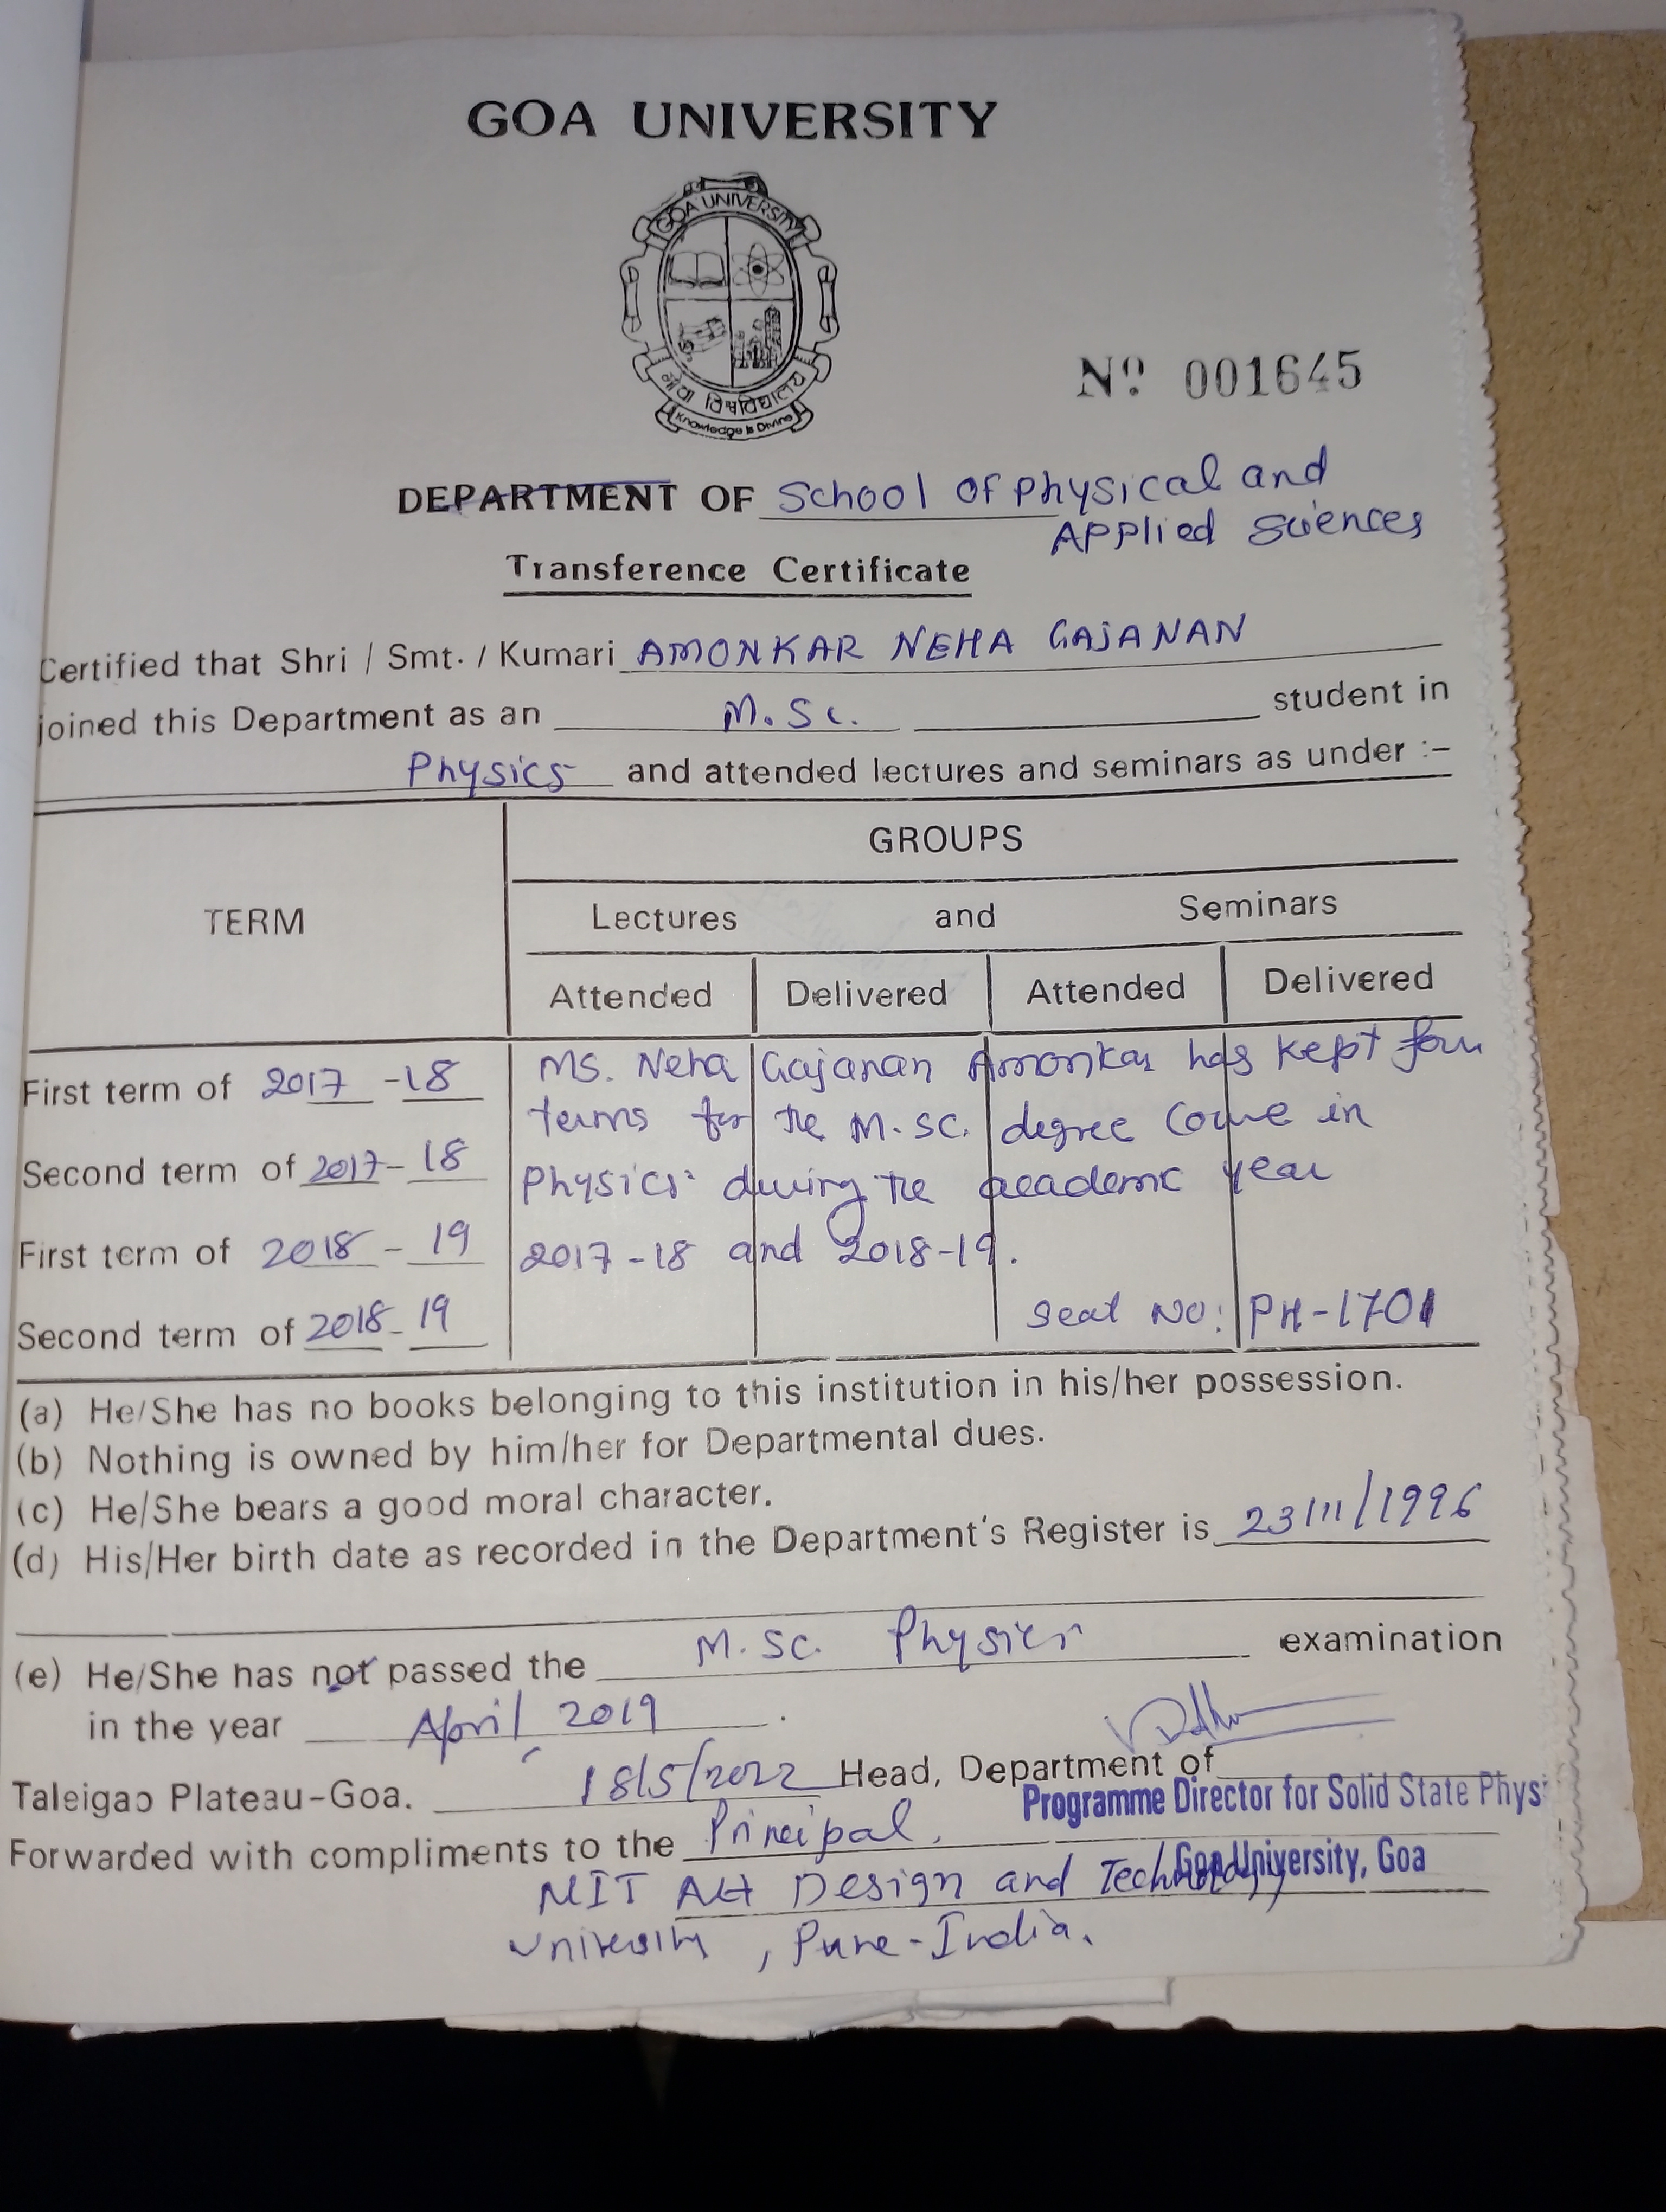 GOA UNIVERSITY
GOA UNIVERSITY
गोंय विश्वविद्यालय
Knowledge is Divine
Nº 001645
DEPARTMENT OF School of Physical and
Applied Sciences
Transference Certificate
Certified that Shri / Smt. / Kumari AMONKAR NEHA GAJANAN
joined this Department as an M.Sc. student in
Physics and attended lectures and seminars as under :–
GROUPS
TERM
Lectures and Seminars
Attended Delivered Attended Delivered
First term of 2017 - 18
Second term of 2017 - 18
First term of 2018 - 19
Second term of 2018 - 19
Ms. Neha Gajanan Amonkar has kept four
terms for the M.Sc. degree course in
Physics during the academic year
2017-18 and 2018-19.
Seat No: PH-1701
(a) He/She has no books belonging to this institution in his/her possession.
(b) Nothing is owned by him/her for Departmental dues.
(c) He/She bears a good moral character.
(d) His/Her birth date as recorded in the Department's Register is 23/11/1996
(e) He/She has not passed the M.Sc. Physics examination
in the year April, 2019.
Taleigao Plateau-Goa. 18/5/2022 Head, Department of
Programme Director for Solid State Phys
Forwarded with compliments to the Principal,
Goa University, Goa
MIT Art Design and Technology
University, Pune-India.